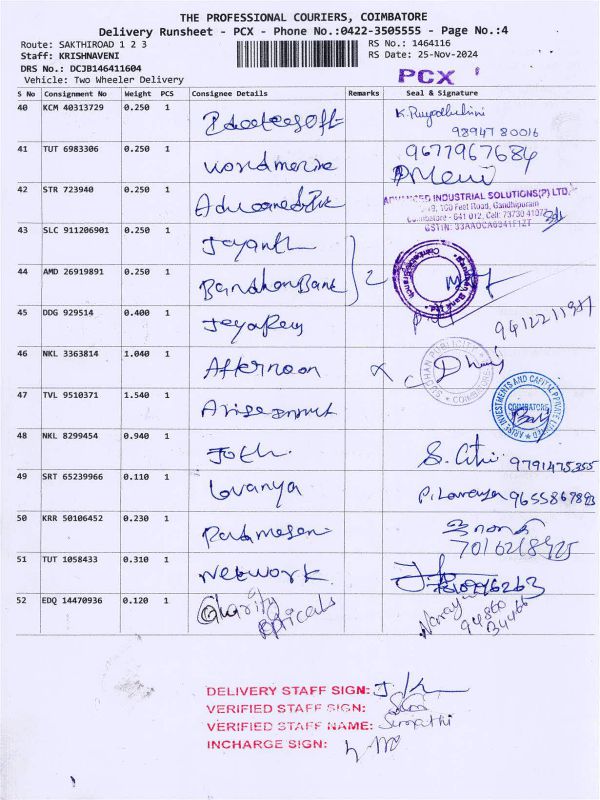 THE PROFESSIONAL COURIERS, COIMBATORE
Delivery Runsheet - PCX - Phone No.:0422-3505555 - Page No.:4
Route: SAKTHIROAD 1 2 3
RS No.: 1464116
Staff: KRISHNAVENI
RS Date: 25-Nov-2024
DRS No.: DCJB146411604
Vehicle: Two Wheeler Delivery
PCX
S No Consignment No Weight PCS Consignee Details Remarks Seal & Signature
40 KCM 40313729 0.250 1
98947 80016
41 TUT 6983306 0.250 1 worldmarine 9677967684
42 STR 723940 0.250 1
ADVANCED INDUSTRIAL SOLUTIONS(P) LTD.
100 Feet Road, Gandhipuram
Coimbatore - 641 012, Cell: 73730 41072
43 SLC 911206901 0.250 1 Jayanth
44 AMD 26919891 0.250 1 Bandhan Bank 2
45 DDG 929514 0.400 1
46 NKL 3363814 1.040 1 Afternoon
SUCHAN PUBLICITY COIMBATORE
47 TVL 9510371 1.540 1
ARISE INVESTMENTS AND CAPITAL PRIVATE LIMITED
COIMBATORE
48 NKL 8299454 0.940 1 Jothi 9791475355
49 SRT 65239966 0.110 1 Lavanya P. Lavanya 9655867893
50 KRR 50106452 0.230 1
7016218925
51 TUT 1058433 0.310 1 Network
52 EDQ 14470936 0.120 1 Charity
Opticals
94860
DELIVERY STAFF SIGN:
VERIFIED STAFF SIGN:
VERIFIED STAFF NAME:
INCHARGE SIGN: